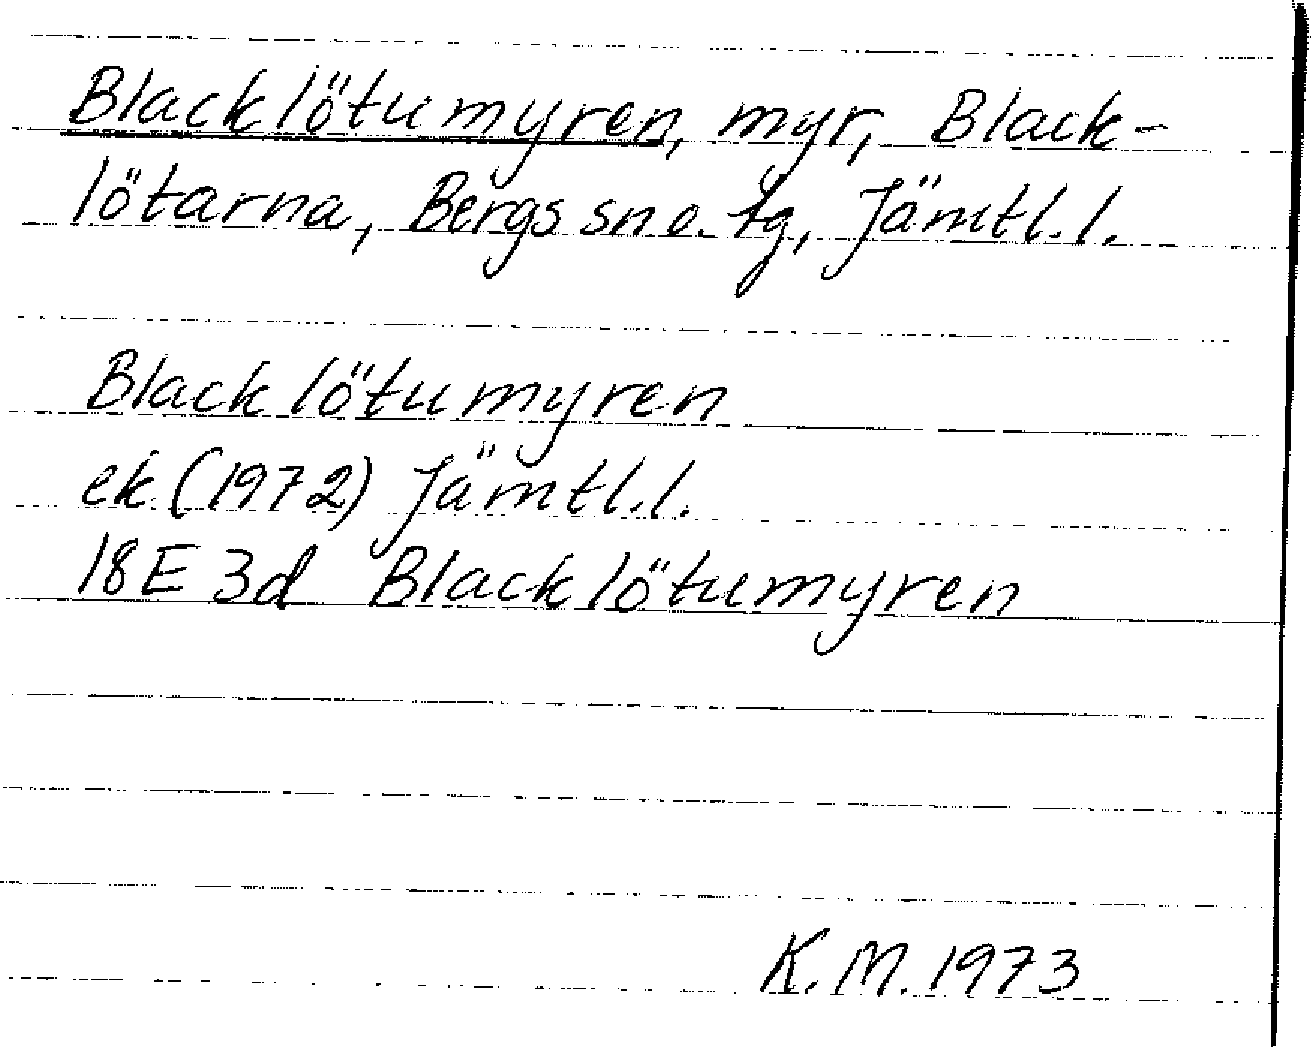 Blacklötumyren, myr, Black-
lötarna, Bergs sn o. tg, Jämtl. l.
Blacklötumyren
ek (1972) Jämtl. l.
18E 3d Blacklötumyren
K. M. 1973